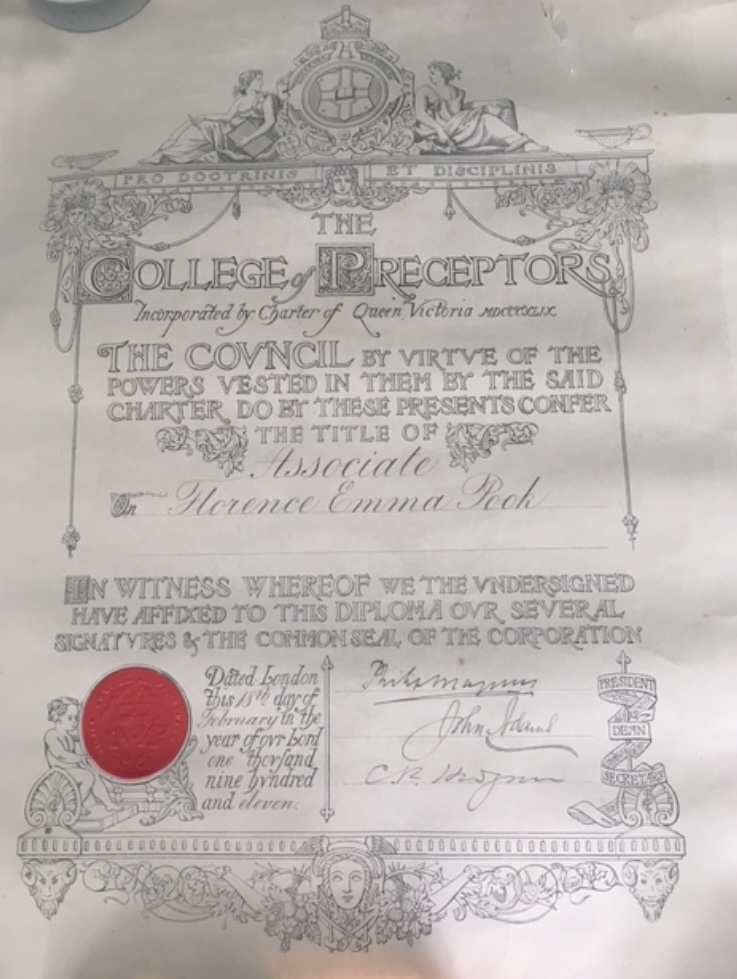 PRO DOCTRINIS ET DISCIPLINIS
THE
COLLEGE of PRECEPTORS
Incorporated by Charter of Queen Victoria MDCCCXLIX
THE COVNCIL BY VIRTVE OF THE
POWERS VESTED IN THEM BY THE SAID
CHARTER DO BY THESE PRESENTS CONFER
THE TITLE OF
Associate
On Florence Emma Pook
IN WITNESS WHEREOF WE THE VNDERSIGNED
HAVE AFFIXED TO THIS DIPLOMA OVR SEVERAL
SIGNATVRES & THE COMMON SEAL OF THE CORPORATION
Dated London
this 18th day of
February in the
year of ovr Lord
one thovsand
nine hvndred
and eleven.
Philip Magnus
John Adams
C.R.
PRESIDENT
DEAN
SECRETARY